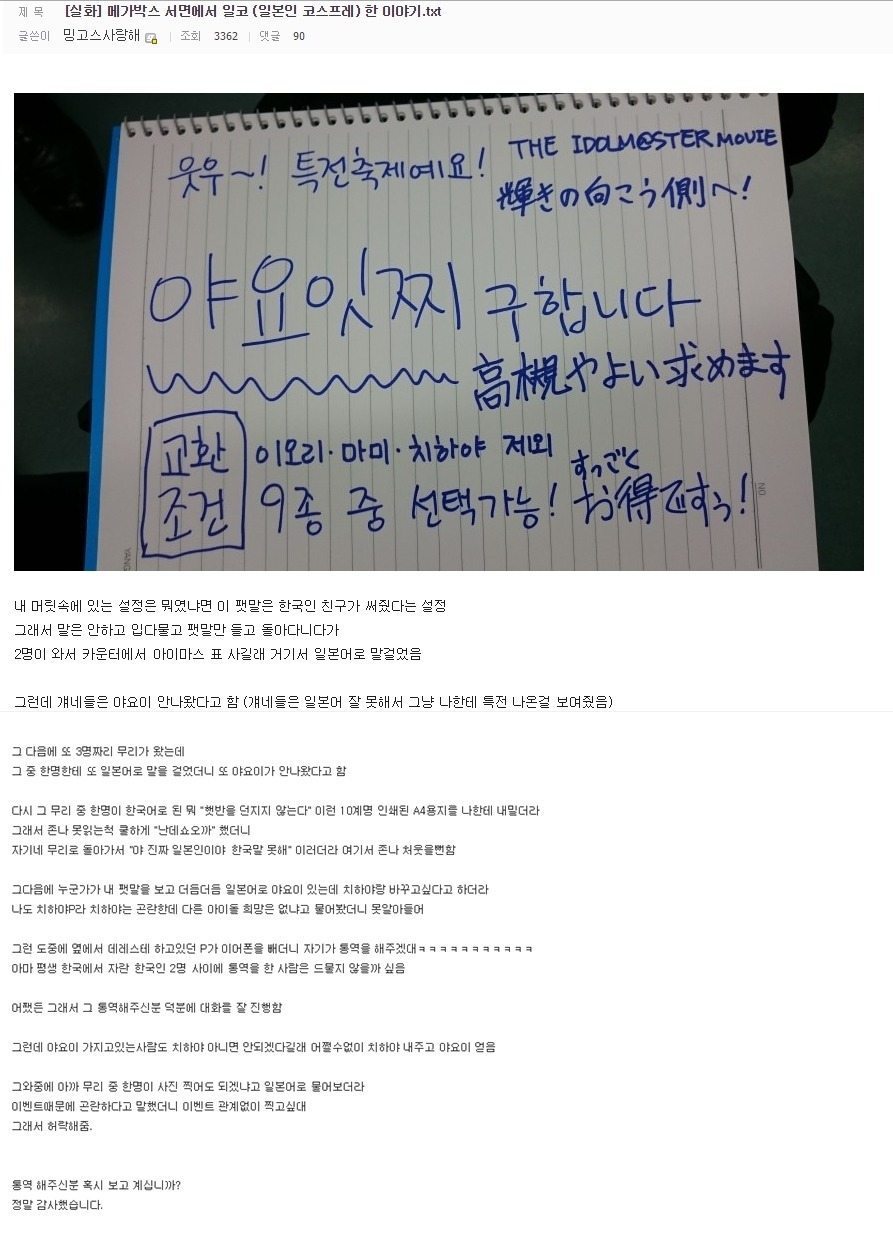 제 목 [실화] 메가박스 서면에서 일코 (일본인 코스프레) 한 이야기.txt
글쓴이 밍고스사랑해 조회 3362 댓글 90
웃우~! 특전축제예요! THE IDOLM@STER MOVIE
輝きの向こう側へ!
야요잇찌 구합니다
高槻やよい求めます
교환 조건
이오리·마미·치하야 제외
9종 중 선택가능! すっごく お得ですぅ!
NO.
YANG
내 머릿속에 있는 설정은 뭐였냐면 이 팻말은 한국인 친구가 써줬다는 설정
그래서 말은 안하고 입다물고 팻말만 들고 돌아다니다가
2명이 와서 카운터에서 아이마스 표 사길래 거기서 일본어로 말걸었음
그런데 걔네들은 야요이 안나왔다고 함 (걔네들은 일본어 잘 못해서 그냥 나한테 특전 나온걸 보여줬음)
그 다음에 또 3명짜리 무리가 왔는데
그 중 한명한테 또 일본어로 말을 걸었더니 또 야요이가 안나왔다고 함
다시 그 무리 중 한명이 한국어로 된 뭐 "햇반을 던지지 않는다" 이런 10계명 인쇄된 A4용지를 나한테 내밀더라
그래서 존나 못읽는척 쿨하게 "난데쇼오까" 했더니
자기네 무리로 돌아가서 "야 진짜 일본인이야 한국말 못해" 이러더라 여기서 존나 처웃을뻔함
그다음에 누군가가 내 팻말을 보고 더듬더듬 일본어로 야요이 있는데 치하야랑 바꾸고싶다고 하더라
나도 치하야P라 치하야는 곤란한데 다른 아이돌 희망은 없냐고 물어봤더니 못알아들어
그런 도중에 옆에서 데레스테 하고있던 P가 이어폰을 빼더니 자기가 통역을 해주겠대ㅋㅋㅋㅋㅋㅋㅋㅋㅋㅋㅋ
아마 평생 한국에서 자란 한국인 2명 사이에 통역을 한 사람은 드물지 않을까 싶음
어쨌든 그래서 그 통역해주신분 덕분에 대화를 잘 진행함
그런데 야요이 가지고있는사람도 치하야 아니면 안되겠다길래 어쩔수없이 치하야 내주고 야요이 얻음
그와중에 아까 무리 중 한명이 사진 찍어도 되겠냐고 일본어로 물어보더라
이벤트때문에 곤란하다고 말했더니 이벤트 관계없이 찍고싶대
그래서 허락해줌.
통역 해주신분 혹시 보고 계십니까?
정말 감사했습니다.